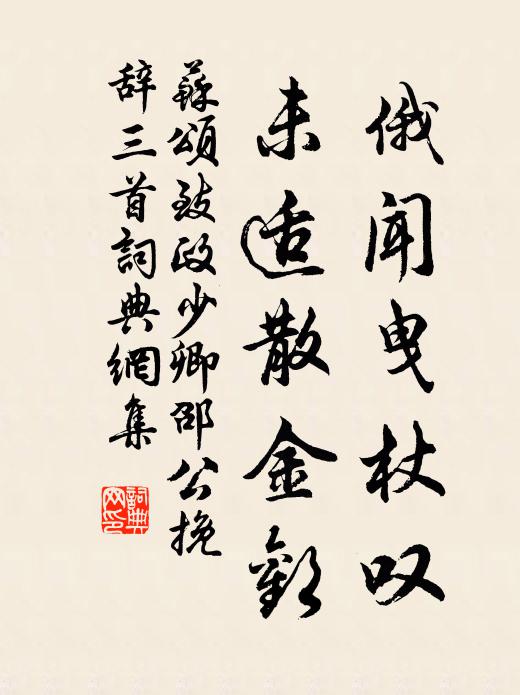 俄闻曳杖叹
未适散金歡
蘇頌致政少卿邵公挽
辞三首詞典網集
詞典网印